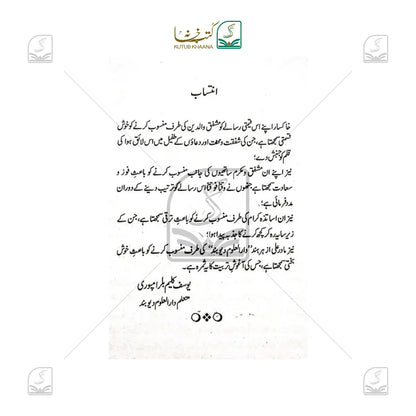 کتب خانہ
KUTUB KHAANA
انتساب
خاکسار اپنے اس قیمتی رسالے کو مشفق والدین کی طرف منسوب کرنے کو خوش
قسمتی سمجھتا ہے، جن کی شفقت ومحنت اور دعاؤں کے طفیل میں اس لائق ہوا کہ
قلم کو جنبش دے؛
نیز اپنے ان مشفق ومکرم ساتھیوں کی جانب منسوب کرنے کو باعثِ فوز و
سعادت سمجھتا ہے، جنھوں نے وقتاً فوقتاً اس رسالے کو ترتیب دینے کے دوران
مدد فرمائی ہے؛
نیز ان اساتذہ کرام کی طرف منسوب کرنے کو باعثِ ترقی سمجھتا ہے، جن کے
زیر سایہ رہ کر کچھ کرنے کا جذبہ پیدا ہوا؛
نیز مادر علمی ازہر ہند "دارالعلوم دیوبند" کی طرف منسوب کرنے کو باعثِ خوش
بختی سمجھتا ہے، جس کی آغوشِ تربیت کا یہ ثمرہ ہے۔
یوسف کلیم بلرامپوری
متعلم دارالعلوم دیوبند